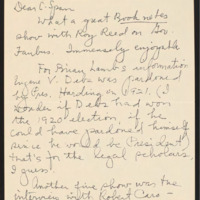 Dear C-Span
What a great Booknotes
show with Roy Reed on Gov.
Faubus. Immensely enjoyable
For Brian Lamb's information
Eugene V. Debs was pardoned
by Pres. Harding on 1921. (I
wonder if Debs had won
the 1920 election, if he
could have pardoned himself
since he would be President)
that's for the legal scholars,
I guess!
Another fine show was the
interview with Robert Caro -